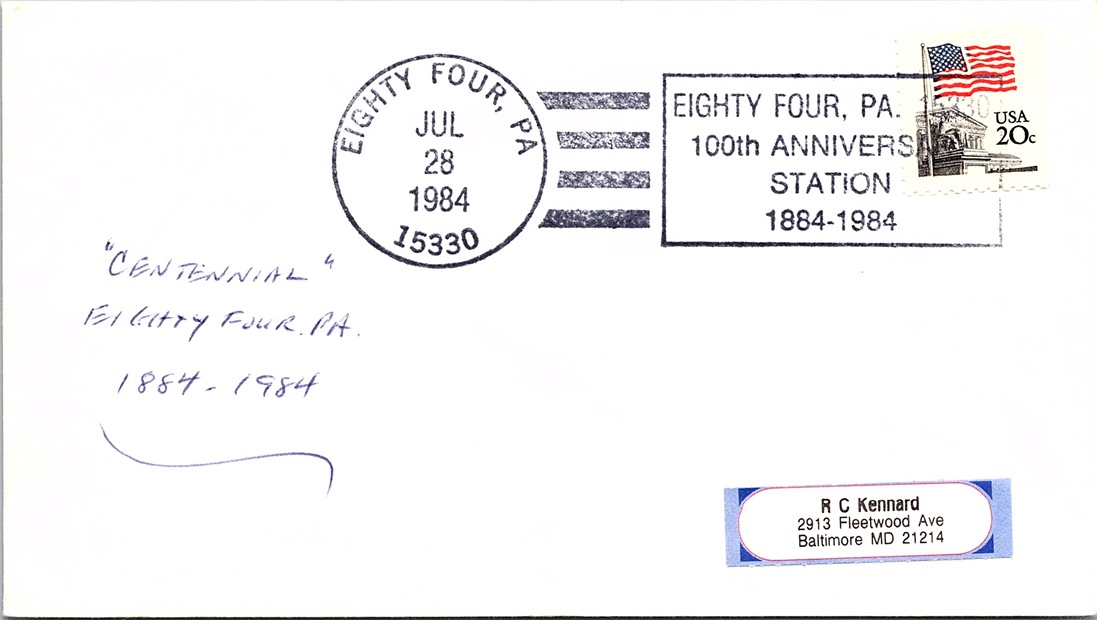 EIGHTY FOUR, PA
JUL
28
1984
15330
EIGHTY FOUR, PA. 15330
100th ANNIVERSA
STATION
1884-1984
USA
20c
"CENTENNIAL"
EIGHTY FOUR. PA.
1884-1984
R C Kennard
2913 Fleetwood Ave
Baltimore MD 21214